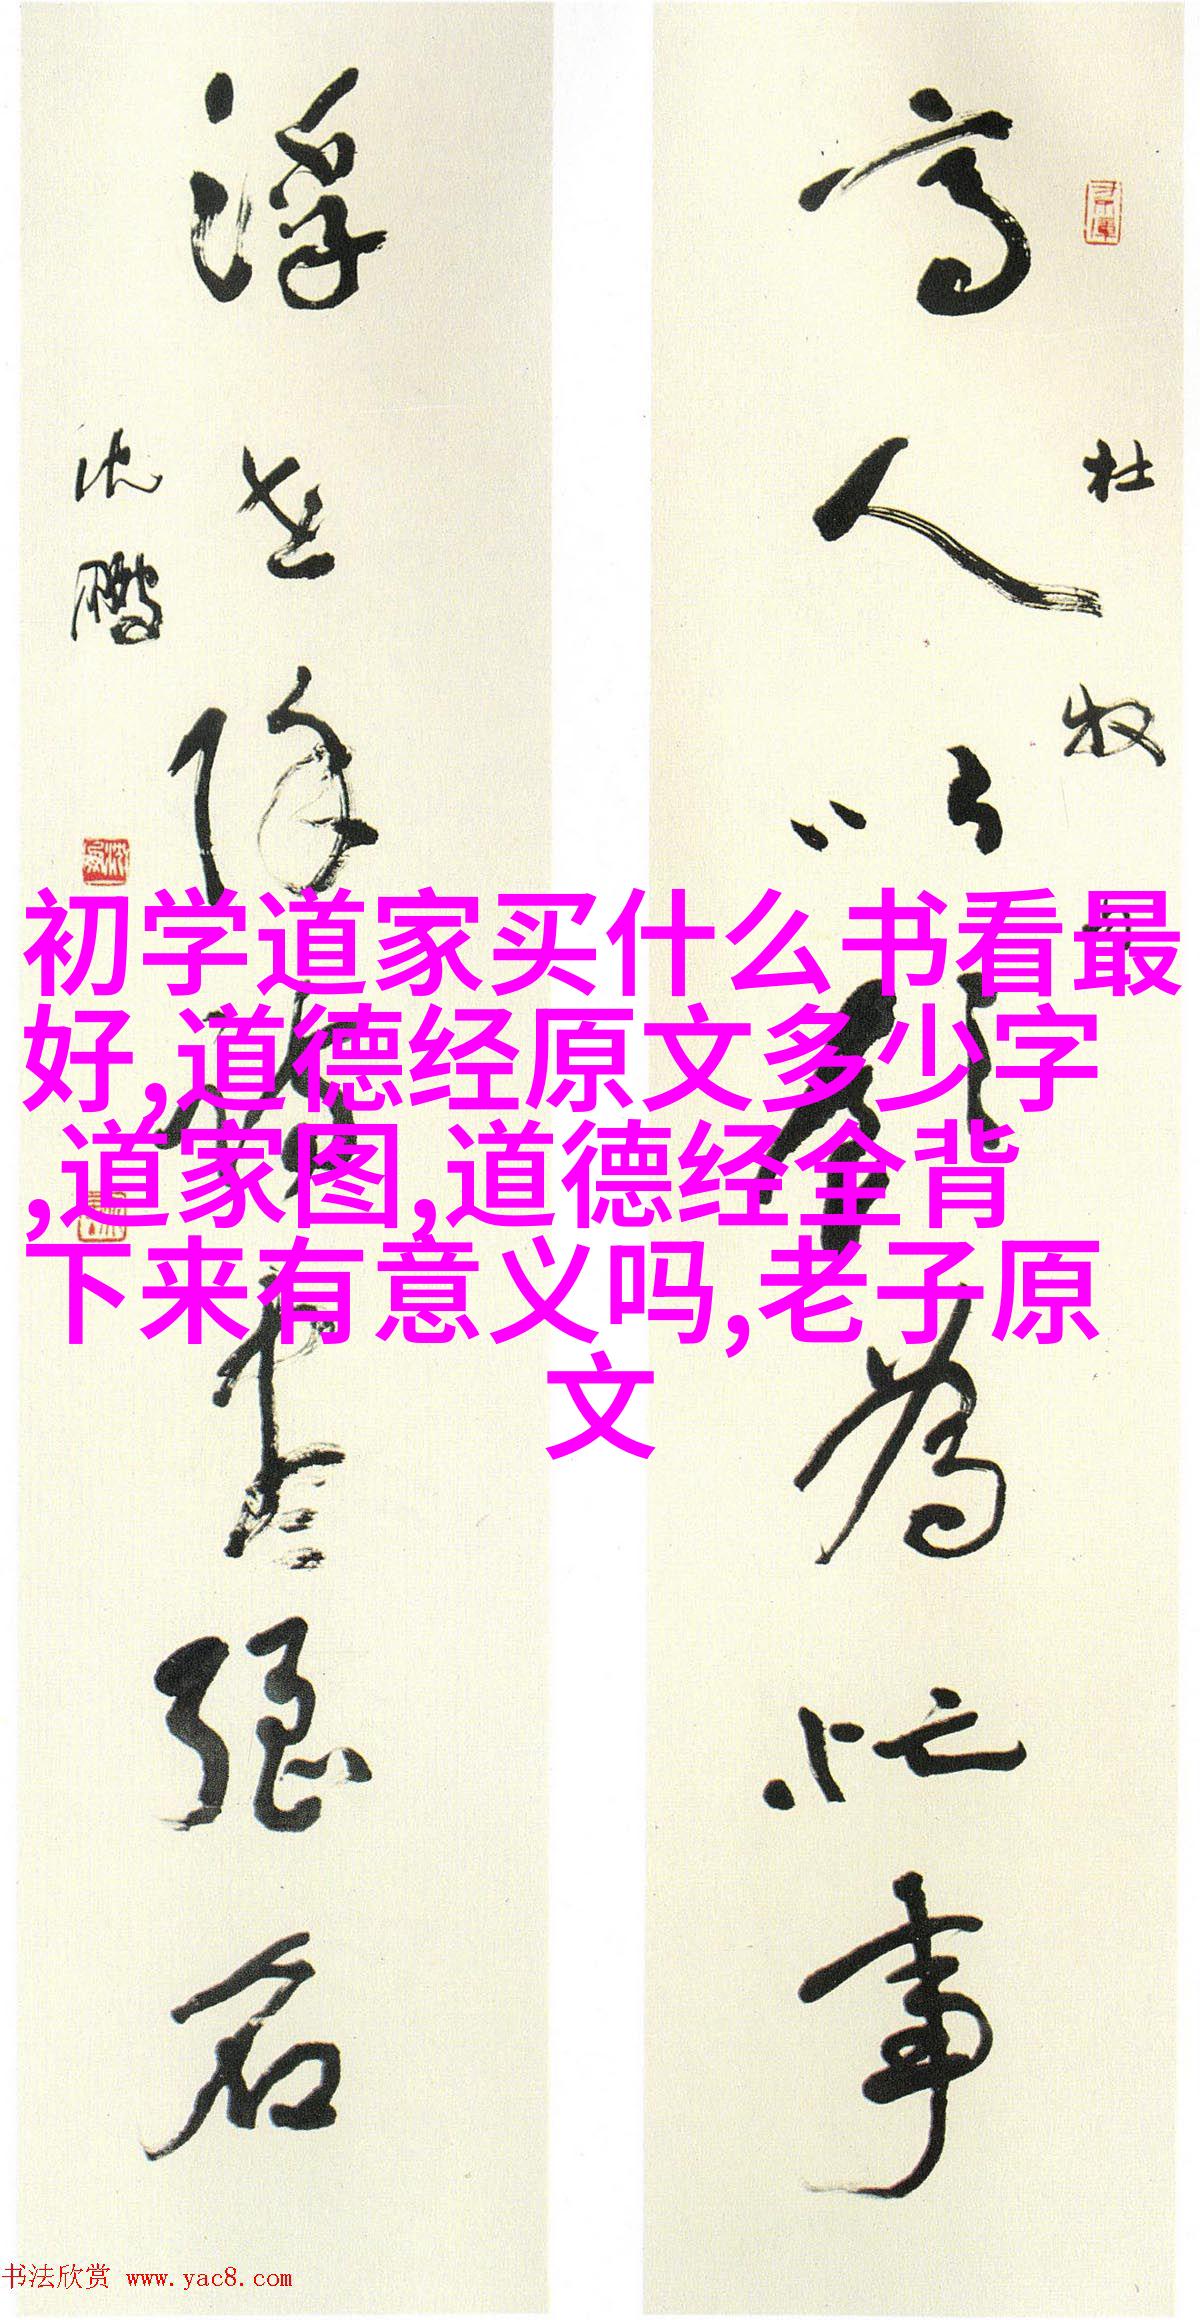 初学道家买什么书看最
好,道德经原文多少字
,道家图,道德经全背
下来有意义吗,老子原
文
杜牧句
高人以飲為忙事
浮世除詩盡强名
沈鹏
书法欣赏 www.yac8.com